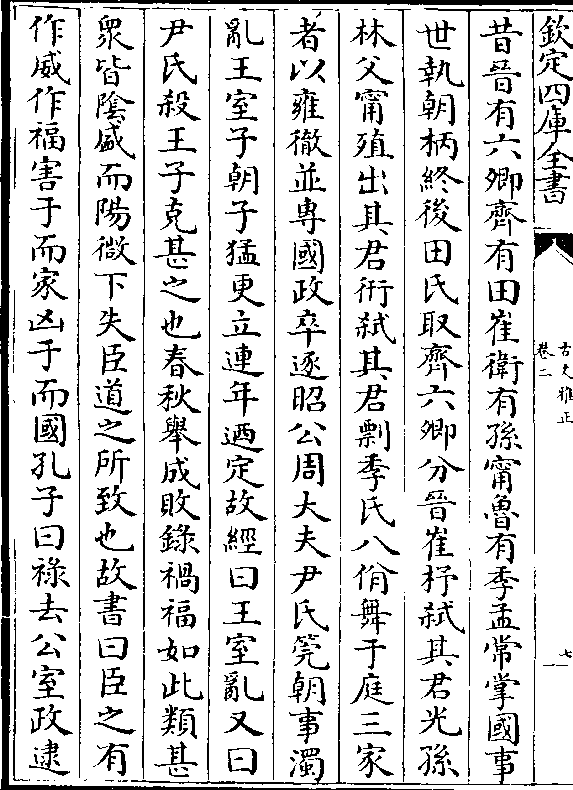 欽定四庫全書
古文雅正
卷二
七
昔晉有六卿齊有田崔衛有孫甯魯有季孟常掌國事
世執朝柄終後田氏取齊六卿分晉崔杼弑其君光孫
林父甯殖出其君衎弑其君剽季氏八佾舞于庭三家
者以雍徹並專國政卒逐昭公周大夫尹氏筦朝事濁
亂王室子朝子猛更立連年廼定故經曰王室亂又曰
尹氏殺王子克甚之也春秋舉成敗錄禍福如此類甚
衆皆陰盛而陽微下失臣道之所致也故書曰臣之有
作威作福害于而家凶于而國孔子曰祿去公室政逮